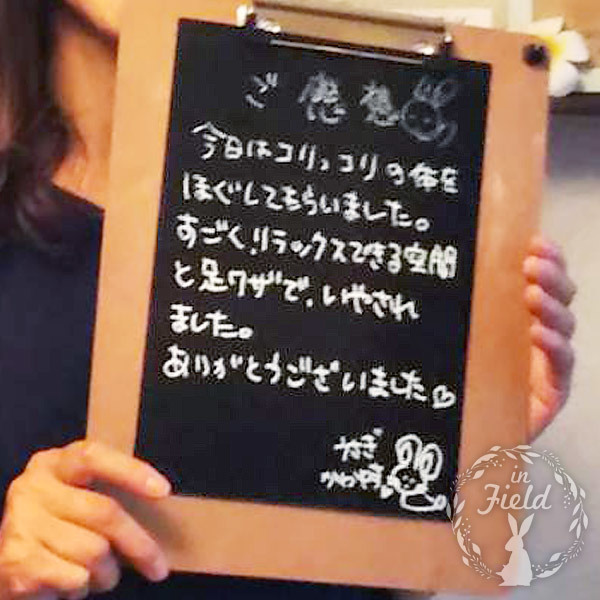 ご感想
今日はコリッコリの体を
ほぐしてもらいました。
すごく、リラックスできる空間
と足ワザで、いやされ
ました。
ありがとうございました♡
うさぎ
かわゆす
in
Field